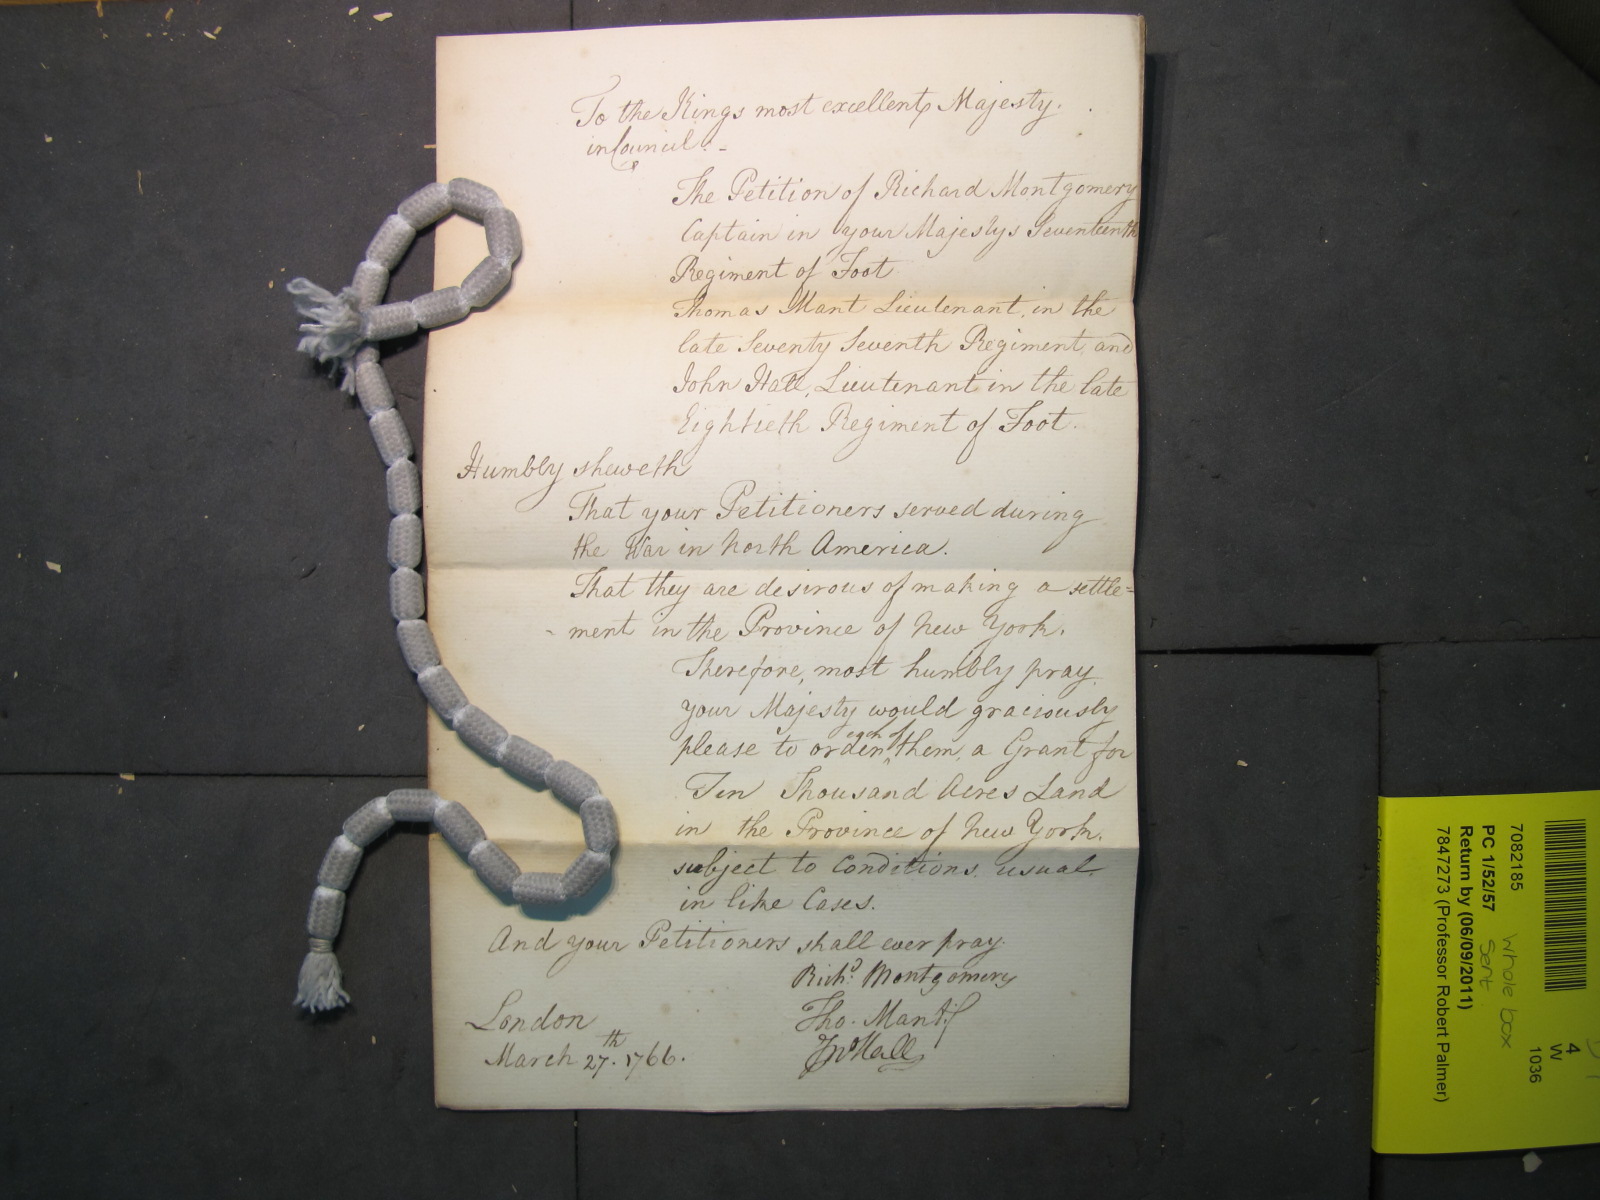 To the Kings most excellent Majesty.
in Council. -
The Petition of Richard Montgomery
Captain in your Majestys Seventeenth
Regiment of Foot
Thomas Mant Lieutenant in the
late Seventy Seventh Regiment, and
John Hall, Lieutenant in the late
Eightieth Regiment of Foot.
Humbly sheweth
That your Petitioners served during
the War in North America.
That they are desirous of making a settle=
- ment in the Province of New York.
Therefore, most humbly pray
your Majesty would graciously
each of
please to order ^ them, a Grant for
Ten Thousand Acres Land
in the Province of New York.
subject to Conditions usual
in like Cases.
And your Petitioners shall ever pray
Richd. Montgomery
Tho. Mant
Jno Hall
London
March 27th. 1766.
4
W
1036
7082185
whole box
PC 1/52/57
sent
Return by (06/09/2011)
7847273 (Professor Robert Palmer)